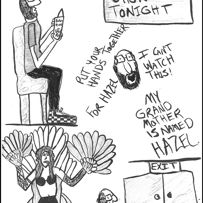 TONIGHT
PUT YOUR
HANDS TOGETHER
FOR HAZEL
I CAN'T
WATCH
THIS!
MY
GRAND
MOTHER
IS NAMED
HAZEL
EXIT